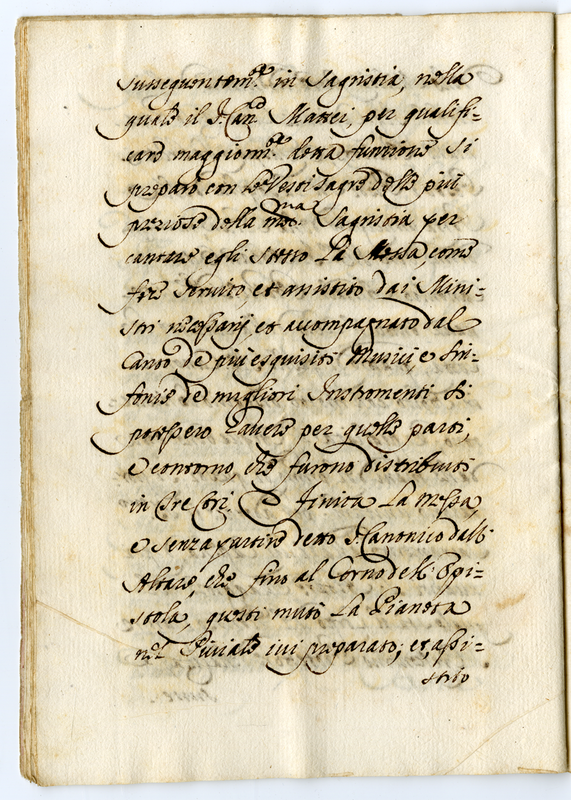 sussequentem.te in Sagristia, nella
quale il S.r Can.co Mattei, per qualifi=
care maggiorm.te detta funzione si
preparò con le Vesti Sagre delle più
preziose della med.ma Sagristia per
cantare egli stesso la Messa, come
fece servito, et assistito dai Mini=
stri necessarij et accompagnato dal
Canto de più esquisiti Musici, e Sin=
fonie de migliori Instromenti si
potessero havere per quelle parti,
e contorno, che furono distribuiti
in tre Cori. Finita la Messa,
e senza partire detto S.r Canonico dall'
Altare, che fino al Corno dell' Epi=
stola, questi mutò la Pianeta
nel Piviale ivi preparato; et assi=
stito